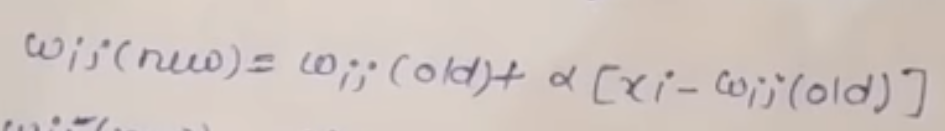 wij(new) = wij(old) + α[xi - wij(old)]